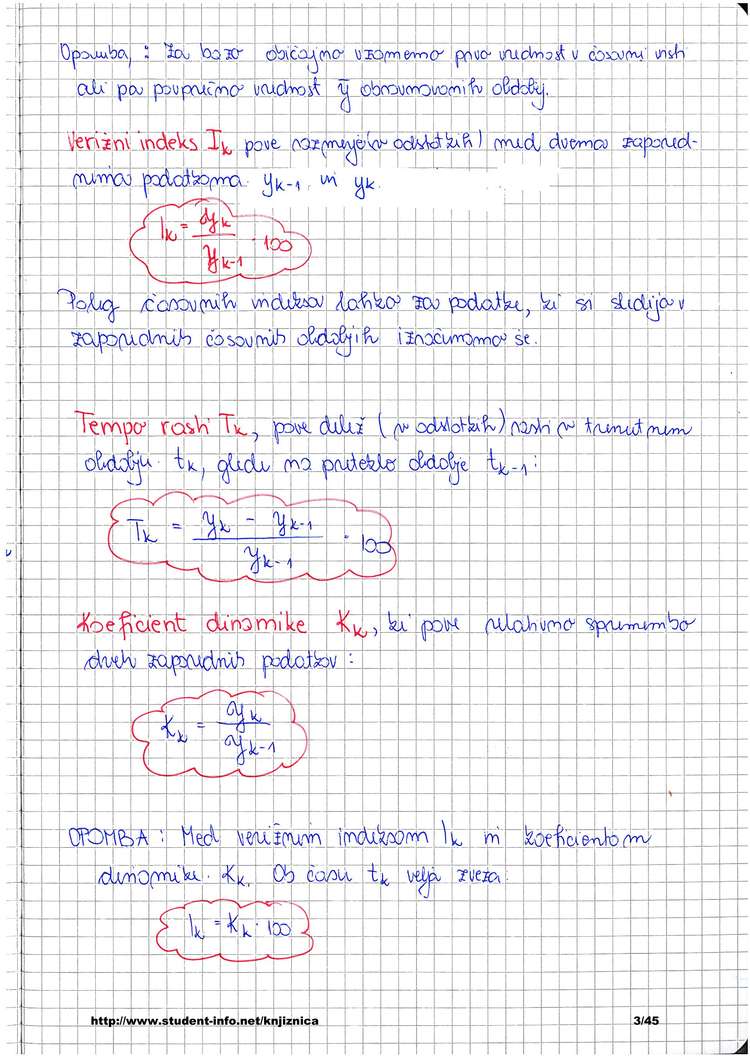 Opomba, : Za bazo običajno vzamemo prvo vrednost v časovni vrsti
ali pa povprečno vrednost ȳ obravnavanih obdobij.
Verižni indeks Iₖ pove razmerje (v odstotkih) med dvema zapored-
nima podatkoma yₖ₋₁ in yₖ.
Iₖ = yₖ / yₖ₋₁ · 100
Poleg časovnih indeksov lahko za podatke, ki si sledijo v
zaporednih časovnih obdobjih izračunamo še.
Tempo rasti Tₖ, pove delež (v odstotkih) rasti v trenutnem
obdobju tₖ, glede na preteklo obdobje tₖ₋₁:
Tₖ = (yₖ - yₖ₋₁) / yₖ₋₁ · 100
Koeficient dinamike Kₖ, ki pove relativno spremembo
dveh zaporednih podatkov :
Kₖ = yₖ / yₖ₋₁
OPOMBA : Med verižnim indeksom Iₖ in koeficientom
dinamike Kₖ. Ob času tₖ velja zveza.
Iₖ = Kₖ · 100
http://www.student-info.net/knjiznica 3/45